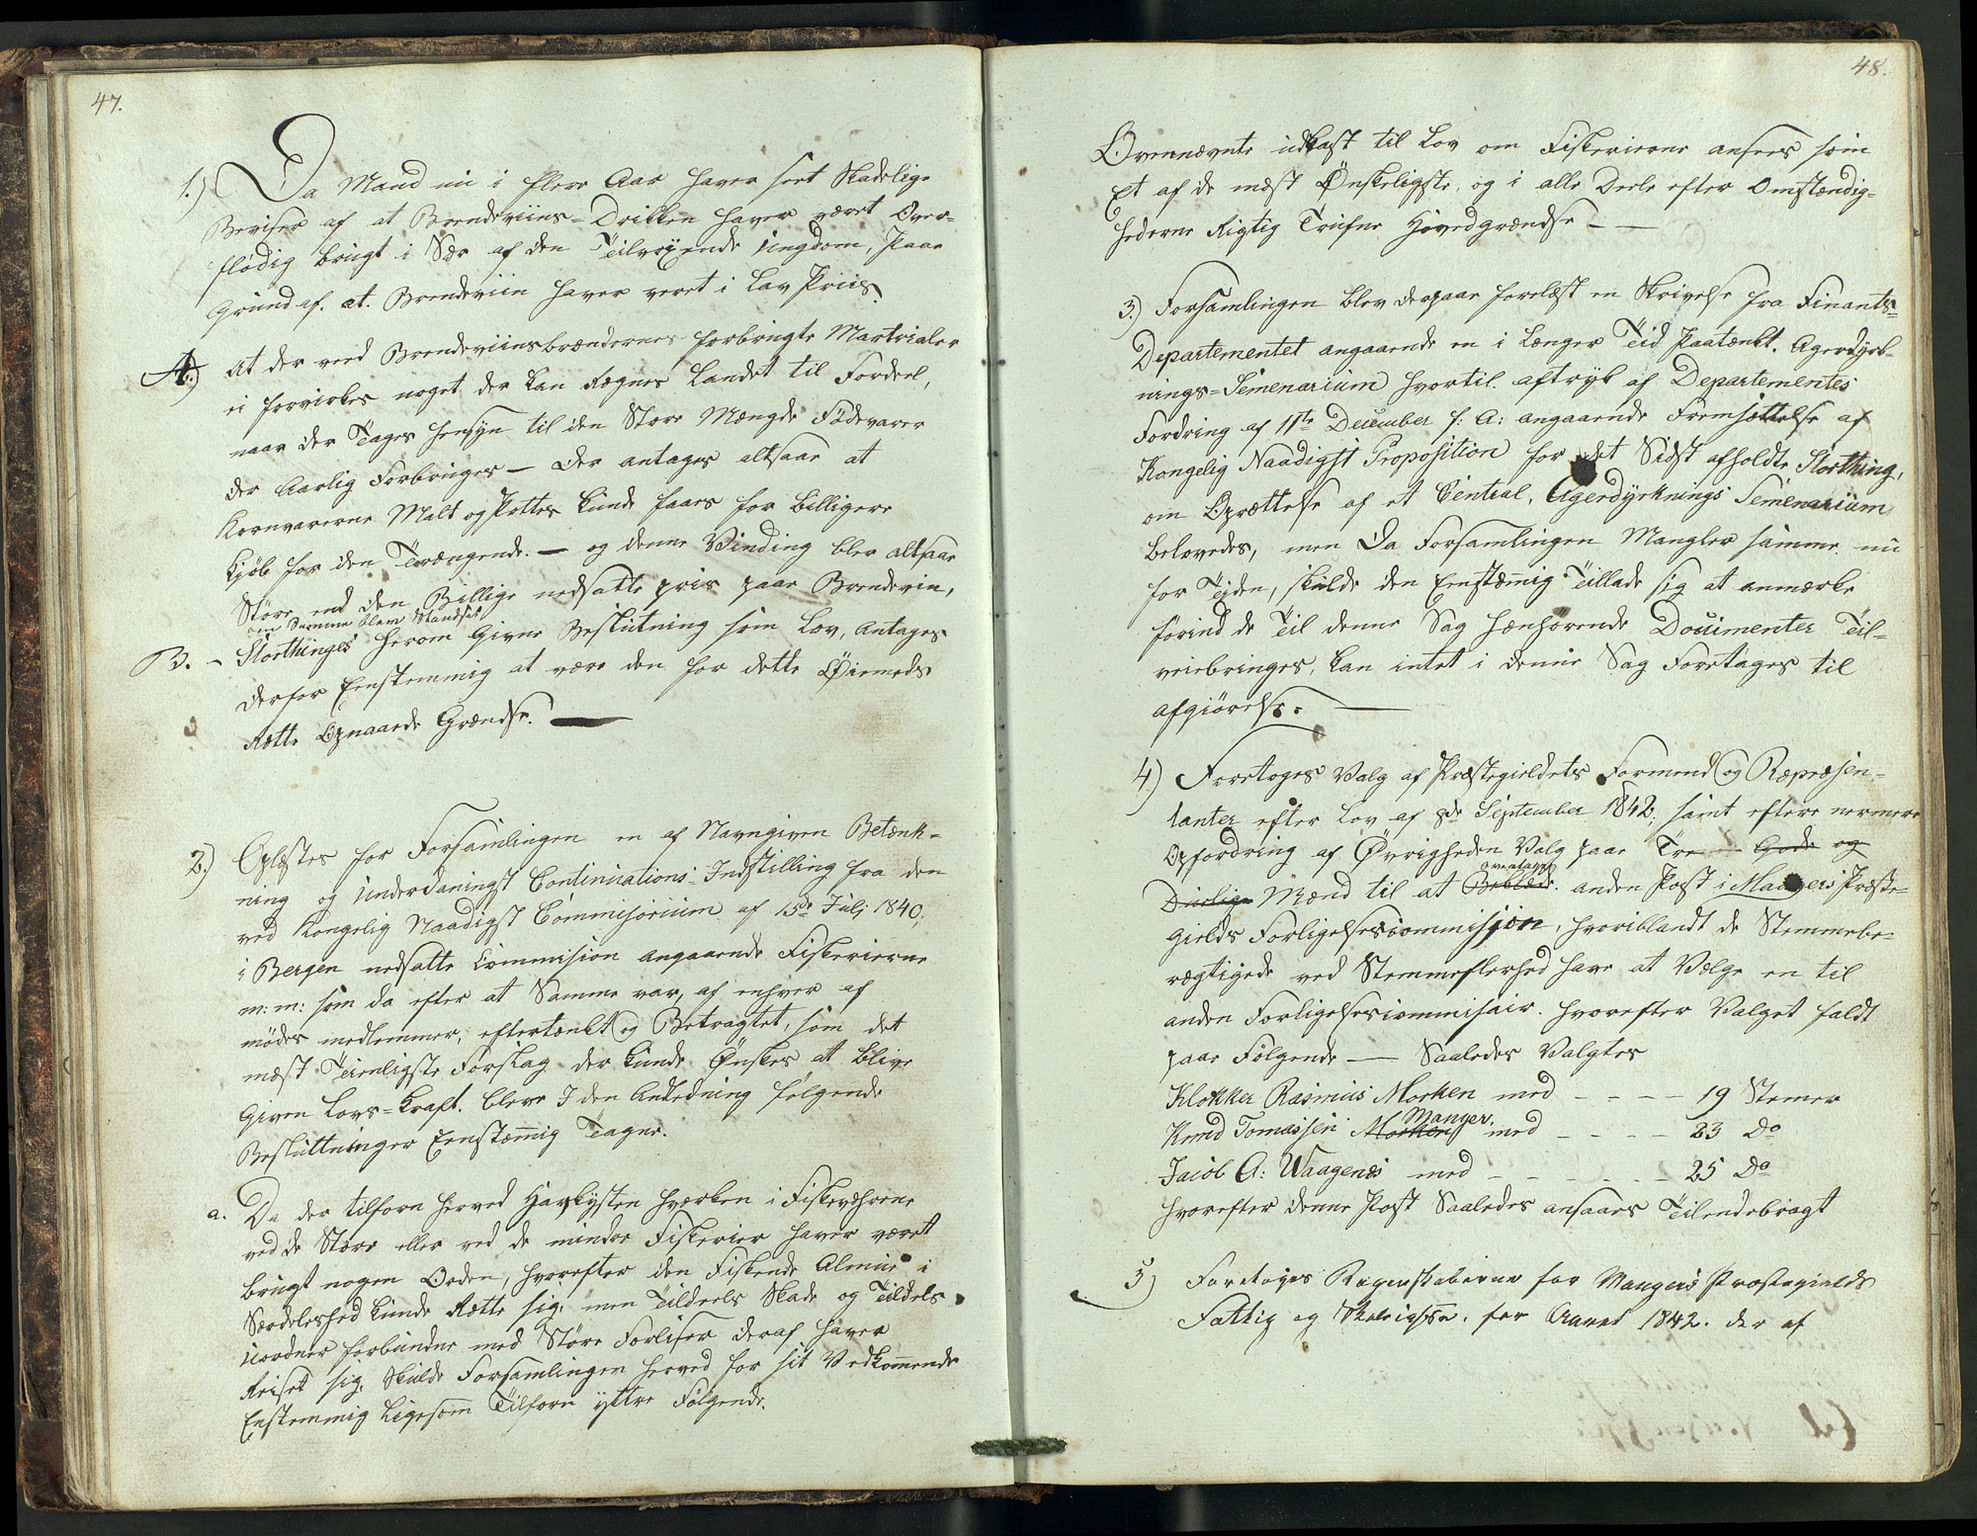 47.
1.) Da Mand nu i flere Aar haver seet Skadelige
Beviser af at Brendeviins-Drikken haver været Over-
flödig brugt i Sær af den Tilvoxende Ungdom, Paa
Grund af. at. Brendeviin haver veret i Lav Priis.
A.) at der ved Brendeviinsbrændernes forbrugte Martrialer
ei forvirkes noget der kan Regnes Landet til Fordeel,
naar der Tages hensyn til den Store Mængde Födevarer
der Aarlig Forbruges — der antages altsaa at
Kornvarerne Malt og Pottes kunde faaes for billigere
kjöb for den Trængende. — og denne Vinding blev altsaa
Större end den Billige nedsatte pris paa Brendevin,
om Samme blev Standset
B. - Storthinges herom Givne Beslutning som Lov, antages
derfor Eenstemmig at være den for dette Øiemeds
Rette Opnaaede Grændse. —
2.) Oplæstes for Forsamlingen en af Navngiven Betænk-
ning og Underdaningst Continuations-Indstilling fra den
ved Kongelig Naadigst Commisorium af 15de Julj 1840,
i Bergen nedsatte Commision angaaende Fiskerierne
m: m: som da efter at Samme var, af enhver af
mödes medlemmer, eftertænkt og Betragtet, som det
mæst Tienligste Forslag der kunde Ønskes at blive
Given Lovs-Kraft. bleve I den Anledning følgende
Besluttninger Eenstæmig Tagne.
a. Da der tilforn herved Havkysten hverken i Fiskeværene
ved de Störe eller ved de mindre Fiskerier haver været
brugt nogen Orden, hvorefter den Fiskende Almue i
Særdeleshed kunde Rette sig, men Tildeels Skade og Tildels
Uordner forbundne med Störe Forliser deraf haver
Reiset sig, Skulde Forsamlingen herved for sit Vedkommende
Enstemmig Ligesom Tilforn ýttre Følgende.
48.
Ovennævnte udkast til Lov om Fiskerierne ansees som
Et af de mæst Ønskeligste, og i alle Deele efter Omstændig-
hederne Rigtig Trufne Hovedgrændse — —
3.) Forsamlingen blev derpaa forelæst en Skrivelse fra Finants-
Departementet angaaende en i Længer Tid Paatænkt. Agerdyrk-
nings-Semenarium hvortil aftryk af Departementes
Fordring af 11te December f: A: angaaende Fremsettelse af
Kongelig Naadigst Proposition for det Sidst afholdte Storthing,
om Oprættelse af et Central, Agerdyrknings Semenarium
belovedes, men Da Forsamlingen Mangler samme nu
for Tiden, skulde den Eenstæmig Tillade sig at anmærke
förind de Til denne Sag hænhørende Documenter Til-
veiebringes, kan intet i denne Sag Foretages til
afgiörelse. —
4) Foretoges Valg af Præstegieldets Formend og Repræsen-
tanter efter Lov af 8de September 1842, samt eftere nermere
Opfordring af Øvrigheden Valg paa Tre Gode og
Duelige Mænd til at Beklæde anden Post i Mangers Præste-
gields Forligelsescommissjon, hvoriblandt de Stemmebe-
rægtigede ved Stemmeflerhed have at Vælge en til
anden Forligelsescommisair. hvorefter Valget faldt
paa Følgende — Saaledes Valgtes
Klokker Rasmus Morken med - - - - 19 Stemer
Knud Tomassen Morken Manger. med - - - - 23 Do
Jacob A: Waagenes med - - - - - - 25 Do
hvorefter denne Post Saaledes ansaaes Tilendebragt
5) Foretoges Regenskaberne for Mangers Præstegields
Fattig og Skolevæsn. for Aaret 1842. der af